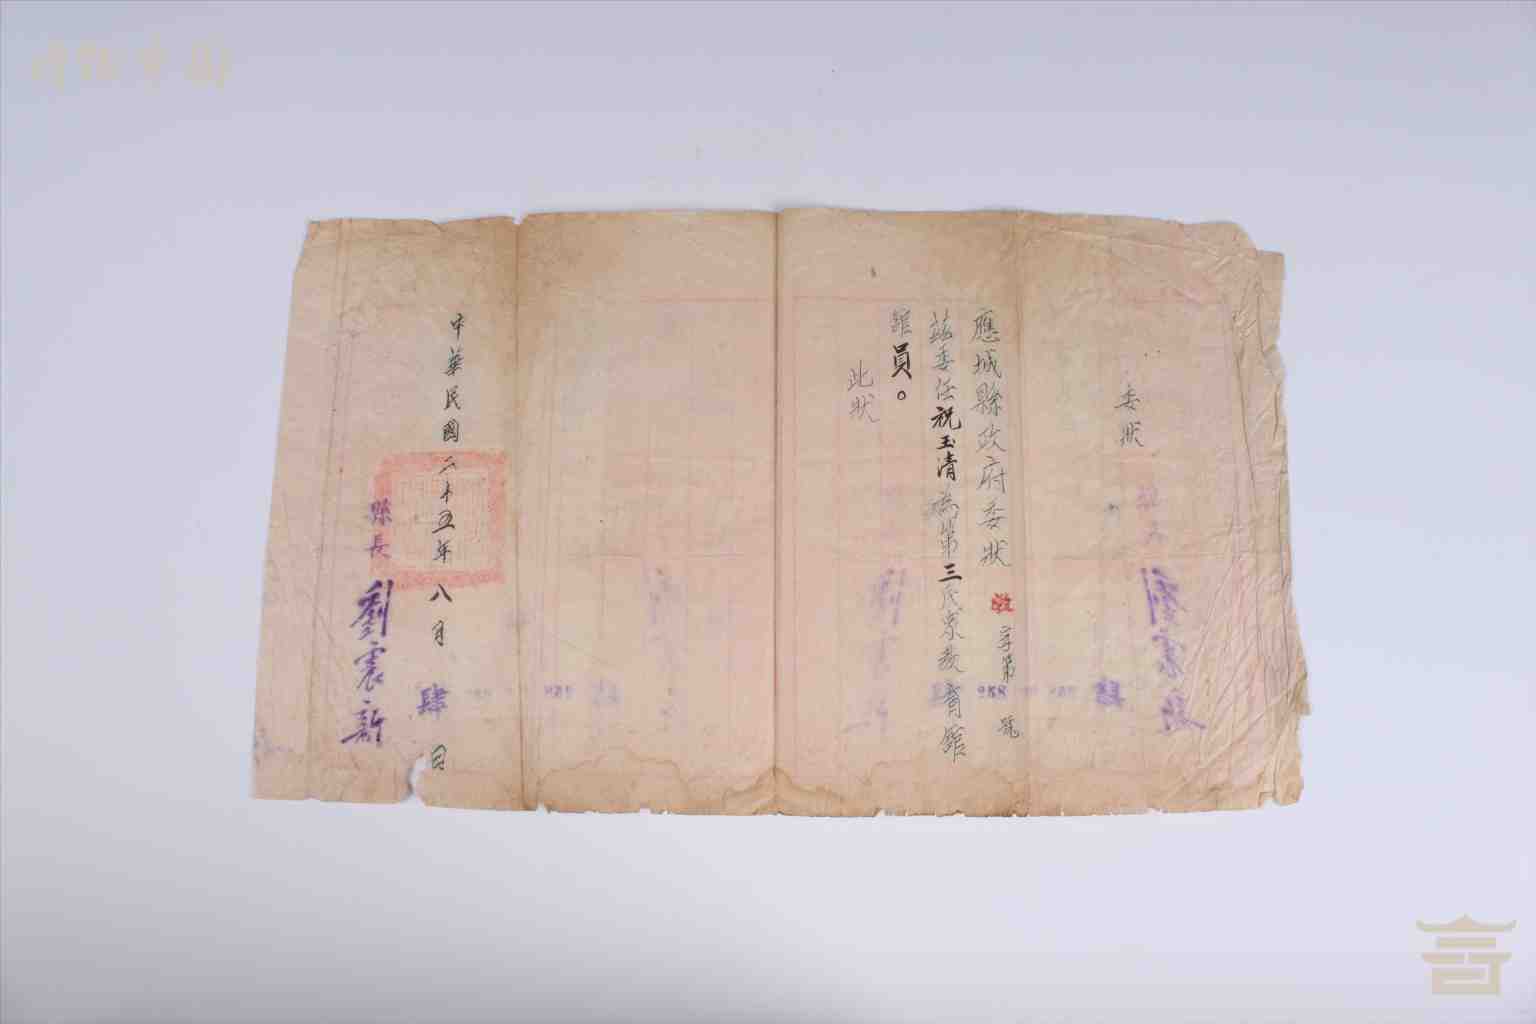 委狀
應城縣政府委狀 教字第 989 號
茲委任祝玉清為第三民眾教育館
館員。
此狀
中華民國二十五年八月肆日
縣長 劉震新